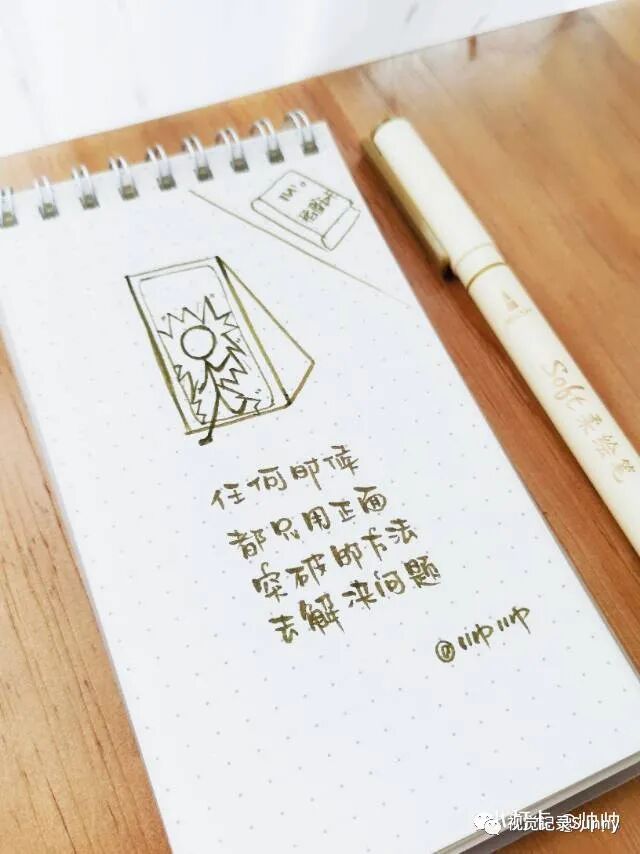 任何时候
都只用正面
突破的方法
去解决问题
@帅帅
Soft 柔绘笔
视觉记录Sunny
@帅帅